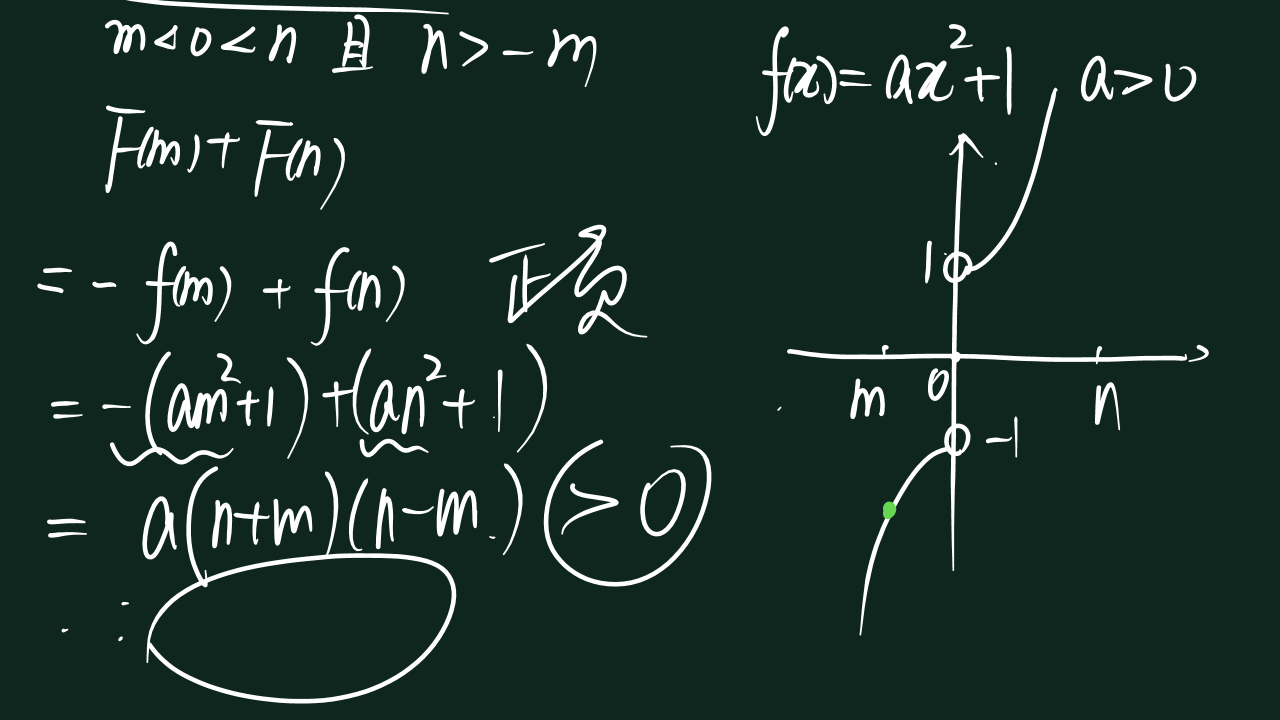 m<0<n 且 n>-m
F(m)+F(n)
=-f(m)+f(n) 正负
=-(am²+1)+(an²+1)
=a(n+m)(n-m)>0
f(x)=ax²+1 a>0
1
m 0 n
-1